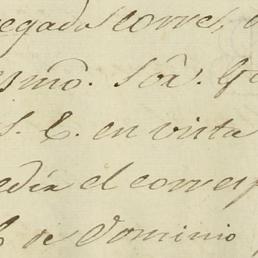 egada corres, 
smo. Sor. G
S. E. en vista
edir el corres
de Dominio